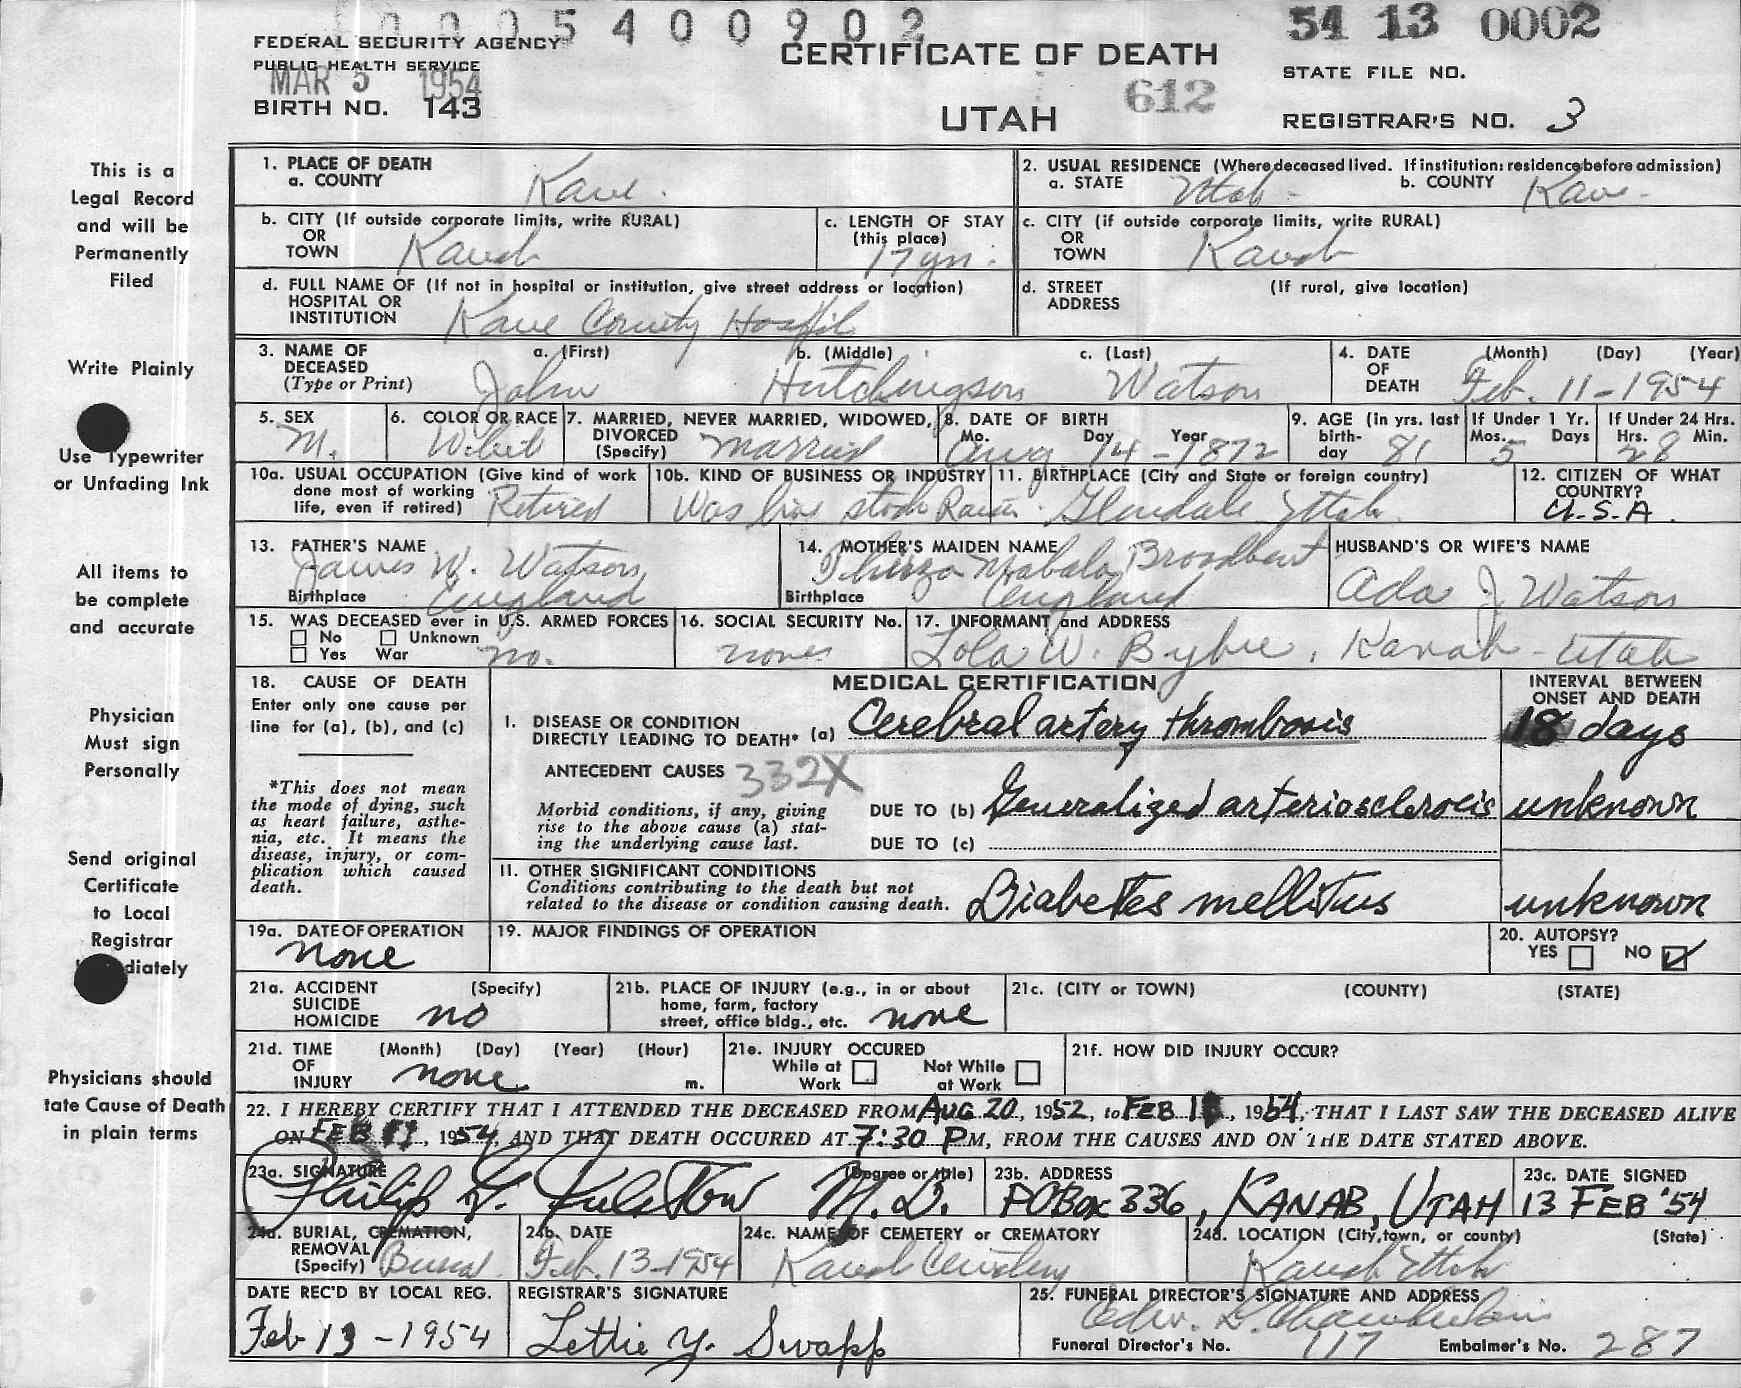 0005400902
54 13 0002
FEDERAL SECURITY AGENCY
PUBLIC HEALTH SERVICE
MAR 5 1954
BIRTH NO. 143
CERTIFICATE OF DEATH
UTAH
612
STATE FILE NO.
REGISTRAR'S NO. 3
This is a
Legal Record
and will be
Permanently
Filed
Write Plainly
Use Typewriter
or Unfading Ink
All items to
be complete
and accurate
Physician
Must sign
Personally
Send original
Certificate
to Local
Registrar
diately
Physicians should
tate Cause of Death
in plain terms
1. PLACE OF DEATH
a. COUNTY Kane.
2. USUAL RESIDENCE (Where deceased lived. If institution: residence before admission)
a. STATE Utah b. COUNTY Kane.
b. CITY (If outside corporate limits, write RURAL)
OR
TOWN Kanab
c. LENGTH OF STAY
(this place)
17 yrs.
c. CITY (if outside corporate limits, write RURAL)
OR
TOWN Kanab
d. FULL NAME OF (If not in hospital or institution, give street address or location)
HOSPITAL OR
INSTITUTION Kane County Hospital
d. STREET (If rural, give location)
ADDRESS
3. NAME OF a. (First) b. (Middle) c. (Last)
DECEASED
(Type or Print) John Hutchingson Watson
4. DATE (Month) (Day) (Year)
OF
DEATH Feb. 11-1954
5. SEX
M.
6. COLOR OR RACE
White
7. MARRIED, NEVER MARRIED, WIDOWED,
DIVORCED
(Specify) Married
8. DATE OF BIRTH
Mo. Day Year
Aug 14-1872
9. AGE (in yrs. last
birth-
day 81
If Under 1 Yr.
Mos. Days
5
If Under 24 Hrs.
Hrs. Min.
28
10a. USUAL OCCUPATION (Give kind of work
done most of working
life, even if retired) Retired
10b. KIND OF BUSINESS OR INDUSTRY
Was live stock Raiser.
11. BIRTHPLACE (City and State or foreign country)
Glendale Utah
12. CITIZEN OF WHAT
COUNTRY?
U.S.A.
13. FATHER'S NAME
James W. Watson
Birthplace England
14. MOTHER'S MAIDEN NAME
Mabala Broadbent
Birthplace England
HUSBAND'S OR WIFE'S NAME
Ada J Watson
15. WAS DECEASED ever in U.S. ARMED FORCES
No Unknown
Yes War no.
16. SOCIAL SECURITY No.
none
17. INFORMANT and ADDRESS
Lola W. Bybee, Kanab - Utah
18. CAUSE OF DEATH
Enter only one cause per
line for (a), (b), and (c)
*This does not mean
the mode of dying, such
as heart failure, asthe-
nia, etc. It means the
disease, injury, or com-
plication which caused
death.
MEDICAL CERTIFICATION
INTERVAL BETWEEN
ONSET AND DEATH
I. DISEASE OR CONDITION
DIRECTLY LEADING TO DEATH* (a) Cerebral artery thrombosis 18 days
ANTECEDENT CAUSES 332X
Morbid conditions, if any, giving
rise to the above cause (a) stat-
ing the underlying cause last.
DUE TO (b) Generalized arteriosclerosis unknown
DUE TO (c)
II. OTHER SIGNIFICANT CONDITIONS
Conditions contributing to the death but not
related to the disease or condition causing death. Diabetes mellitus unknown
19a. DATE OF OPERATION
none
19. MAJOR FINDINGS OF OPERATION
20. AUTOPSY?
YES NO ✓
21a. ACCIDENT (Specify)
SUICIDE
HOMICIDE no
21b. PLACE OF INJURY (e.g., in or about
home, farm, factory
street, office bldg., etc. none
21c. (CITY or TOWN) (COUNTY) (STATE)
21d. TIME (Month) (Day) (Year) (Hour)
OF
INJURY none m.
21e. INJURY OCCURED
While at Work
Not While at Work
21f. HOW DID INJURY OCCUR?
22. I HEREBY CERTIFY THAT I ATTENDED THE DECEASED FROM AUG 20, 1952, to FEB 1, 1954, THAT I LAST SAW THE DECEASED ALIVE
ON FEB 11, 1954, AND THAT DEATH OCCURED AT 7:30 PM, FROM THE CAUSES AND ON THE DATE STATED ABOVE.
23a. SIGNATURE (Degree or title)
Philip G. M.D.
23b. ADDRESS
PO Box 336, KANAB, UTAH
23c. DATE SIGNED
13 FEB '54
24a. BURIAL, CREMATION,
REMOVAL
(Specify) Burial
24b. DATE
Feb. 13-1954
24c. NAME OF CEMETERY or CREMATORY
Kanab Cemetery
24d. LOCATION (City, town, or county) (State)
Kanab Utah
DATE REC'D BY LOCAL REG.
Feb 13-1954
REGISTRAR'S SIGNATURE
Lettie Y. Swapp
25. FUNERAL DIRECTOR'S SIGNATURE AND ADDRESS
Edw. G. Chamberlain
Funeral Director's No. 117 Embalmer's No. 287